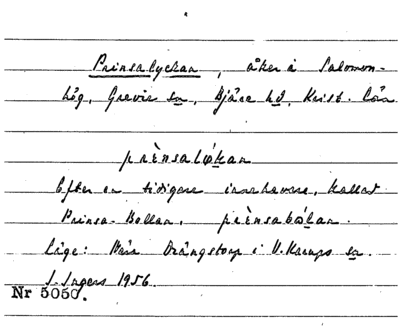 Prinsalyckan, åker å Salomon-
hög, Grevie sn, Bjäre hd, Krist. län
prènsaløkan
Efter en tidigare innehavare, kallad
Prinsa-Bollan, prènsabålan.
Läge: När Drängstorp i V. Karups sn.
I. Ingers 1956.
Nr 5050.